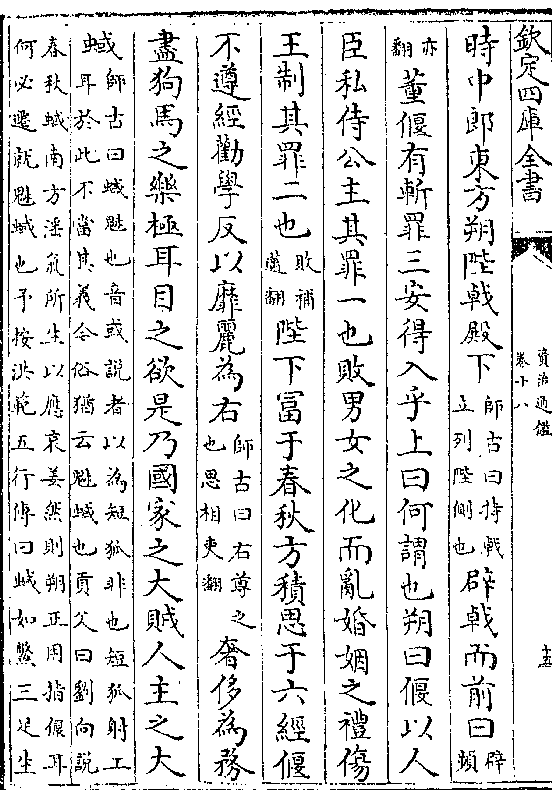 欽定四庫全書
資治通鑑
卷十八
十五
時中郎東方朔陛戟殿下師古曰持戟立列陛側也辟戟而前曰辟頻
亦翻董偃有斬罪三安得入乎上曰何謂也朔曰偃以人
臣私侍公主其罪一也敗男女之化而亂婚姻之禮傷
王制其罪二也敗補邁翻陛下富于春秋方積思于六經偃
不遵經勸學反以靡麗為右師古曰右尊之也思相吏翻奢侈為務
盡狗馬之樂極耳目之欲是乃國家之大賊人主之大
蜮師古曰蜮魅也音或說者以為短狐非也短狐射工耳於此不當其義今俗猶云魅蜮也貢父曰劉向說
春秋蜮南方淫氣所生以應哀姜然則朔正用指偃耳何必遷就魅蜮也予按洪範五行傳曰蜮如鱉三足生